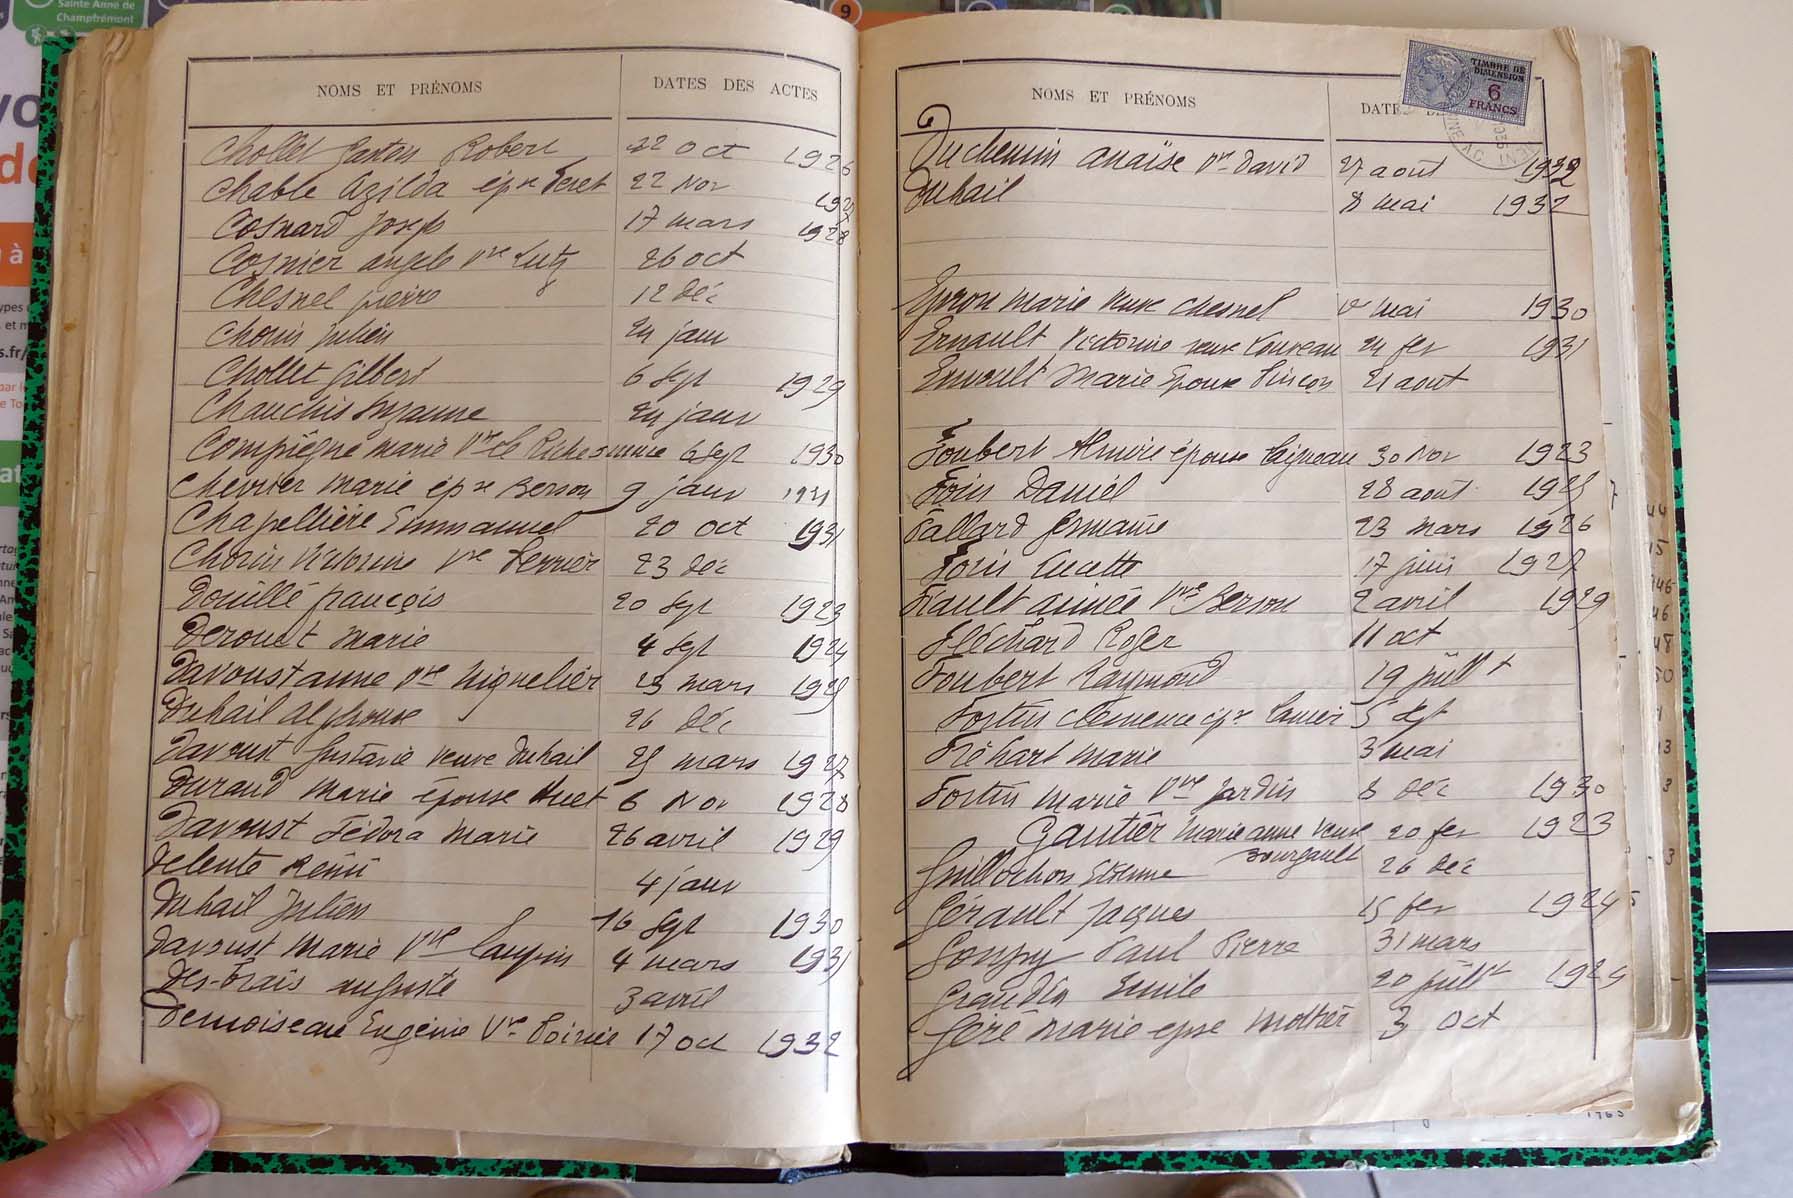 Sainte Anne de
Champfrémont
9
NOMS ET PRÉNOMS DATES DES ACTES
Chollet Gaston Robert 22 Oct 1926
Chable Azilda épse 22 Nov 1927
Cosnard Joseph 17 mars 1928
Cosnier angele Vve Lutz 26 oct
Chesnel pierre 12 Déc
Chorin Julien 24 janv
Chollet Gilbert 6 Sept 1929
Chauchis Suzanne 24 janv
Compiègne marie Vve 6 Sept 1930
Chevrier Marie épse Berson 9 janv 1931
Chapellière Emmanuel 20 Oct 1931
Chorin Victorine Vve Terrier 23 Déc
Douillé françois 20 Sept 1923
Derouet Marie 4 Sept 1924
Davoust anne Vve 23 mars 1925
Duhail Alphonse 26 Déc
Davoust Gustavie veuve Duhail 25 mars 1927
Durand Marie épouse Huet 6 Nov 1928
Davoust Fédora Marie 26 avril 1929
Delente Rémi 4 janv
Duhail Julien 16 Sept 1930
Davoust Marie Vve Caupin 4 mars 1931
Des-brais auguste 3 avril
Demoiseau Eugénie Vve Poirier 17 Oct 1932
NOMS ET PRÉNOMS
TIMBRE DE
DIMENSION
6
FRANCS
Duchemin anaïse Vve David 27 août 1932
Duhail 8 mai 1932
Epron Marie veuve Chesnel 1er mai 1930
Ernault Victorine veuve 24 fev 1931
Ernault Marie Epouse Pinçon 21 aout
Foubert épouse 30 Nov 1923
Foin Daniel 28 aout 1925
Fallard Germaine 23 mars 1926
Foin Lucette 17 juin 1927
Fault aimée Vve Berson 2 avril 1929
Fléchard Roger 11 oct
Foubert Raymond 19 juillt
Fortin Clemence épse 5 Sept
Fréhart Marie 3 mai
Fortin Marie Vve Jardin 8 Déc 1930
Gautier Marie anne Veuve 20 fev 1923
Bourgault
Guillochon Etienne 26 Déc
Gérault Jacques 15 fev 1924
Goupy Paul Pierre 31 mars
Graudin Emile 20 juillt 1924
Géré Marie epse Mottier 3 Oct